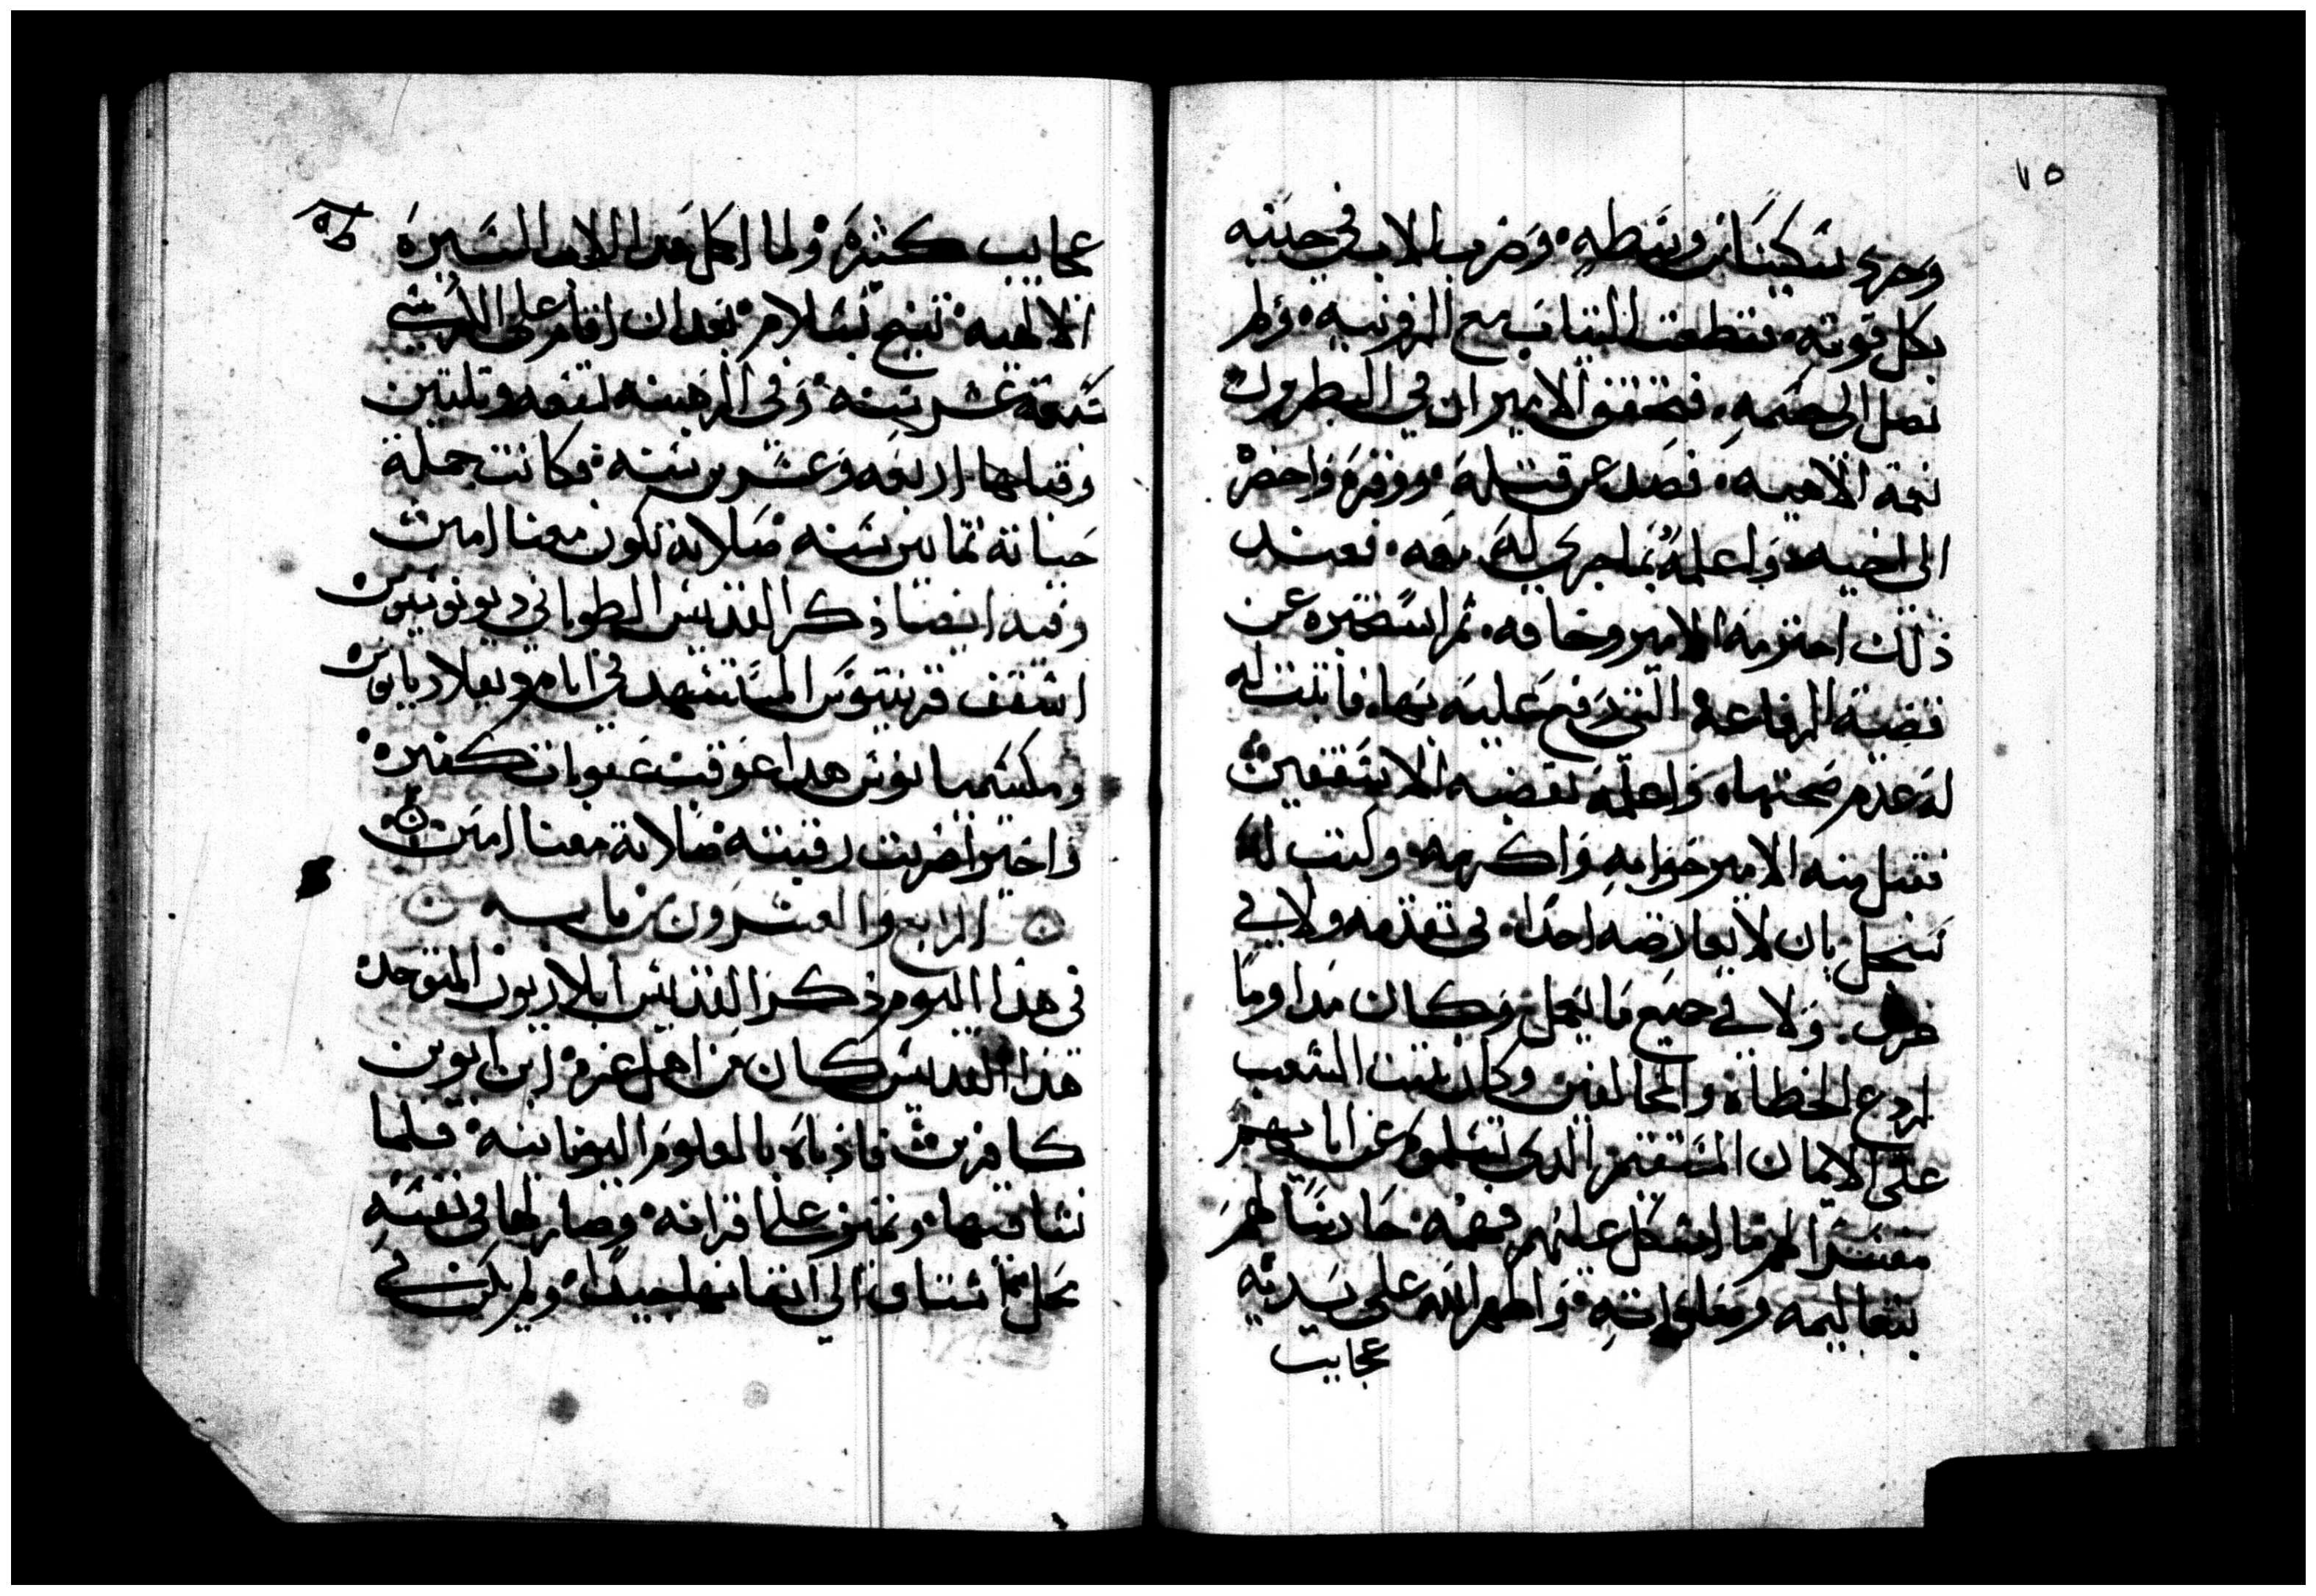 ٧٥
وجرد سكينا من وسطه، وضرب الاب في جنبه
بكل قوته، فقطعت الثياب مع الزونيه، ولم
تصل الى جسمه، فتحقق الامير ان في البطريرك
نعمة الاهيه، فصد عن قتله، ووقره واحضره
الى اخيه، واعلمه بما جرى له معه، فعند
ذلك احترمه الامير وخافه، ثم استخبره عن
قضية الرفاعه التي رفع عليه بها، فاثبت له
له عدم صحتها، واعلمه بقضيه الاسقفين
فقبل منه الامير جوابه واكرمه، وكتب له
سجل بان لا يعارضه احدا، في تقدمه ولا في
حرم، ولا في جميع ما يعمل، وكان مداوما
لردع الخطاة والمخالفين وكان يثبت الشعب
على الايمان المستقيم الذي تسلموه عن ابايهم
مفسرا لهم ما اشكل عليهم فهمه، حارسا لهم
بتعاليمه وصلواته، واظهر الله على يديه
عجايب
عجايب كثيره، ولما اكمل هدا الاب السيرة
الالهيه، تنيح بسلام، بعد ان اقام على الكرسي
تسعة عشر سنه، وفي الرهبنه تسعه وتلتين
وقبلها اربعه وعشرين سنه، فكانت جملة
حياته تمانين سنه صلاته تكون معنا امين
وفيه ايضا ذكر القديس الطوباني ديونوسيوس
اسقف قرنتوس المستشهد في ايام ديقلاديانوس
ومكسيميانوس هدا عوقب عقوبات كثيره
واخيرا ضربت رقبته صلاته معنا امين
الرابع والعشرون من بابه
في هذا اليوم ذكر القديس ايلاريون المتوحد
هذا القديس كان من اهل غزه، ابن ابوين
كافرين فادباه بالعلوم اليونانيه، فلما
نشا فيها، وتميز على اقرانه، وصار لها في نفسه
محل اشتاق الى اتقانها جيدا، ولم يكن في